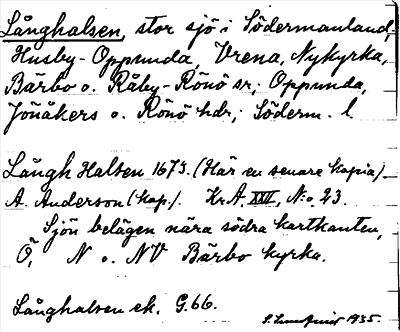 Långhalsen, stor sjö i Södermanland;
Husby-Oppunda, Vrena, Nykyrka,
Bärbo o. Råby-Rönö sr; Oppunda,
Jönåkers o. Rönö hdr; Söderm. l.
Långh Halsen 1675. (Här en senare kopia)
A. Anderson (kop.). KrA XXII, N:o 23.
Sjön belägen nära södra kartkanten,
Ö, N o. NV Bärbo kyrka.
Långhalsen ek. G.66.
1935.